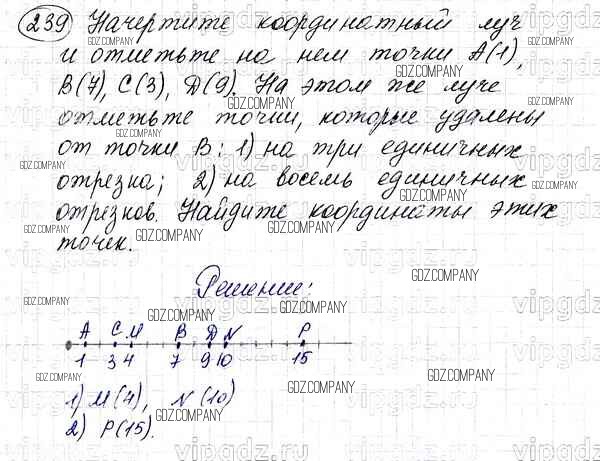 239 Начертите координатный луч
и отметьте на нем точки A(1),
B(7), C(3), D(9). На этом же луче
отметьте точки, которые удалены
от точки B: 1) на три единичных
отрезка; 2) на восемь единичных
отрезков. Найдите координаты этих
точек.
Решение:
A C M B D N P
1 3 4 7 9 10 15
1) M(4), N(10)
2) P(15).
GDZ.COMPANY
vipgdz.ru